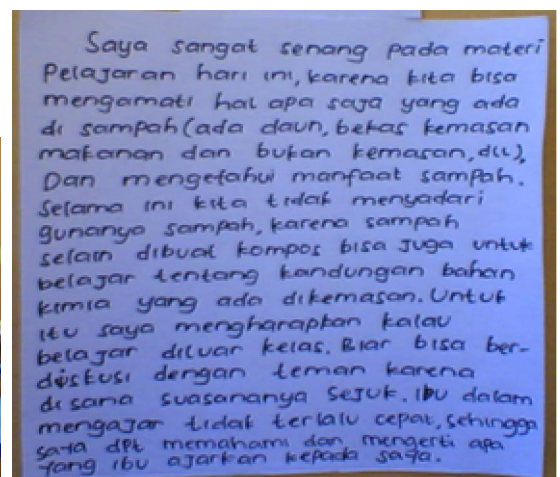 Saya sangat senang pada materi
Pelajaran hari ini, karena kita bisa
mengamati hal apa saja yang ada
di sampah (ada daun, bekas kemasan
makanan dan bukan kemasan, dll),
Dan mengetahui manfaat sampah.
Selama ini kita tidak menyadari
gunanya sampah, karena sampah
selain dibuat kompos bisa juga untuk
belajar tentang kandungan bahan
kimia yang ada dikemasan. Untuk
itu saya mengharapkan kalau
belajar diluar kelas. Biar bisa ber-
diskusi dengan teman karena
di sana suasananya sejuk. Ibu dalam
mengajar tidak terlalu cepat, sehingga
saya dpt memahami dan mengerti apa
yang ibu ajarkan kepada saya.